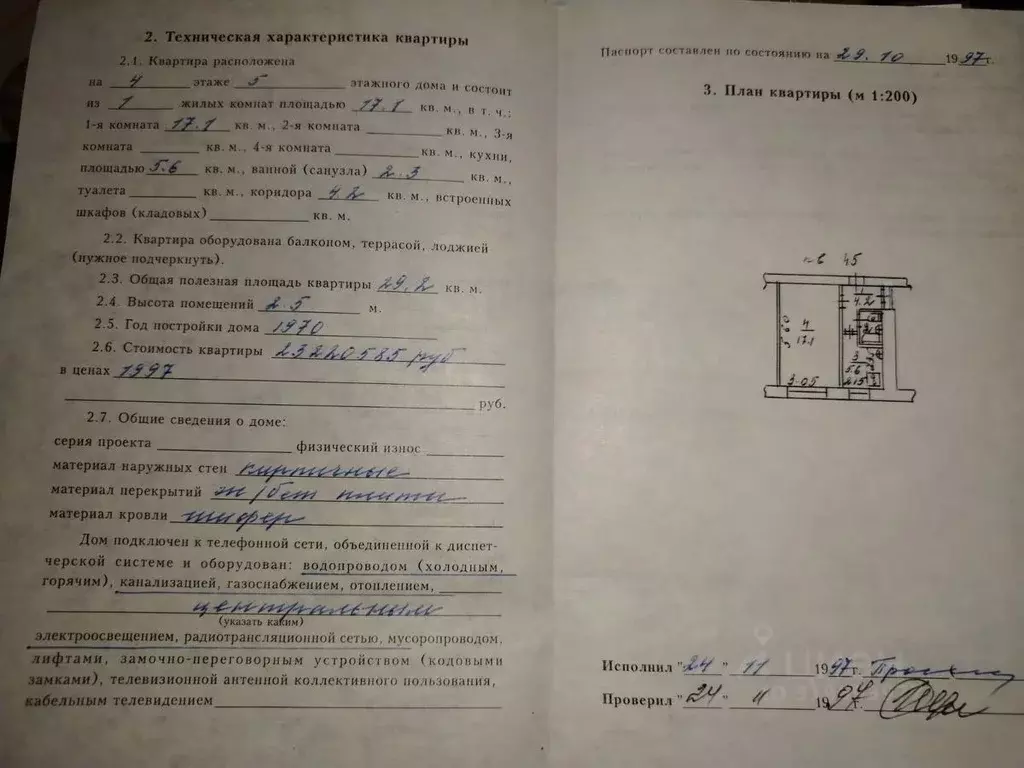 2. Техническая характеристика квартиры
2.1. Квартира расположена
на 4 этаже 5 этажного дома и состоит
из 1 жилых комнат площадью 17.1 кв. м., в т. ч.:
1-я комната 17.1 кв. м., 2-я комната кв. м., 3-я
комната кв. м., 4-я комната кв. м., кухни,
площадью 5.6 кв. м., ванной (санузла) 2.3 кв. м.,
туалета кв. м., коридора 4.2 кв. м., встроенных
шкафов (кладовых) кв. м.
2.2. Квартира оборудована балконом, террасой, лоджией
(нужное подчеркнуть).
2.3. Общая полезная площадь квартиры 29.2 кв. м.
2.4. Высота помещений 2.5 м.
2.5. Год постройки дома 1970
2.6. Стоимость квартиры 23220585 руб
в ценах 1997
руб.
2.7. Общие сведения о доме:
серия проекта физический износ
материал наружных стен кирпичные
материал перекрытий ж/бет плиты
материал кровли шифер
Дом подключен к телефонной сети, объединенной к диспет-
черской системе и оборудован: водопроводом (холодным,
горячим), канализацией, газоснабжением, отоплением,
центральным
(указать каким)
электроосвещением, радиотрансляционной сетью, мусоропроводом,
лифтами, замочно-переговорным устройством (кодовыми
замками), телевизионной антенной коллективного пользования,
кабельным телевидением
Паспорт составлен по состоянию на 29.10 1997г.
3. План квартиры (м 1:200)
45
4.2
5.60
4
17.1
3
5.6
3.05
2.15
Исполнил "24" 11 1997г.
Проверил "24" 11 1997